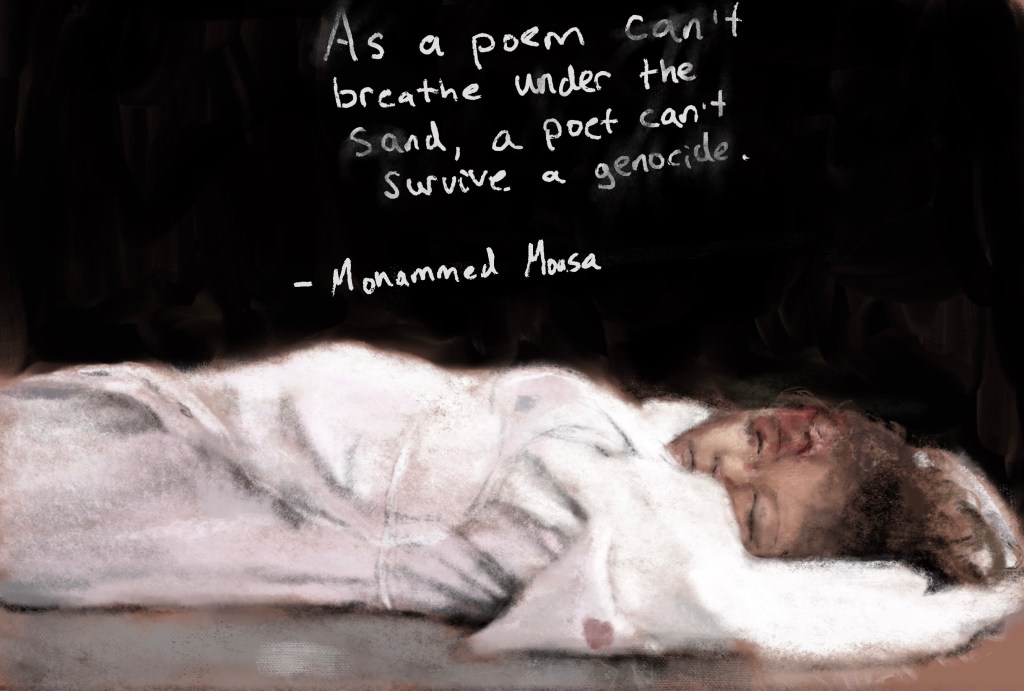 As a poem can't
breathe under the
sand, a poet can't
survive a genocide.
- Mohammed Mousa